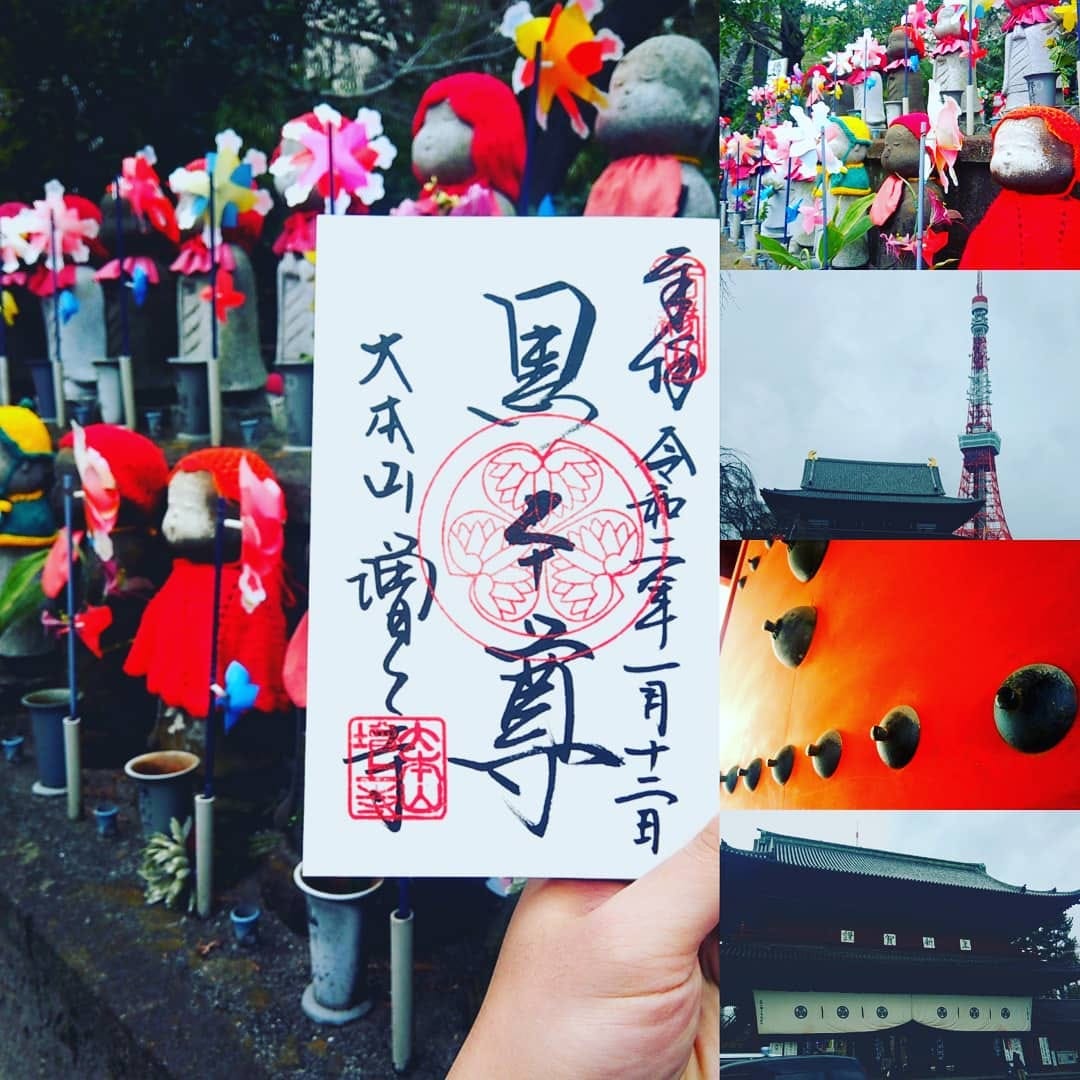 令和二年一月十二日
黒本尊
大本山 増上寺
大本山
増上寺
謹賀新正